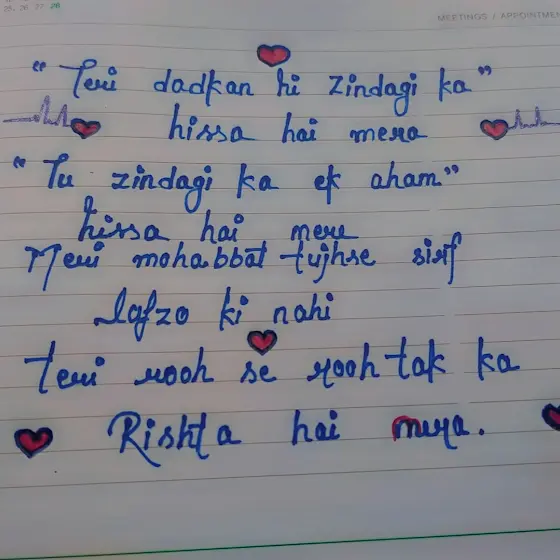 25. 26 27 28
MEETINGS / APPOINTMEN
"Teri dadkan hi zindagi ka"
hissa hai mera
"Tu zindagi ka ek aham"
hissa hai mere
Meri mohabbat tujhse sirf
lafzo ki nahi
Teri rooh se rooh tak ka
Rishta hai mera.